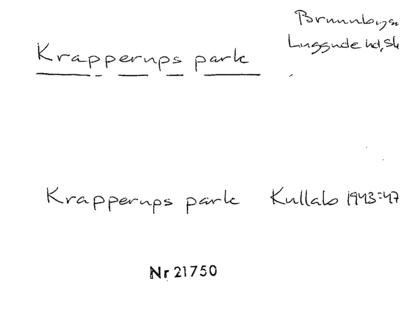 Brunnbys
Luggude hd, Sk
Krapperups park
Krapperups park Kullabo 1943:47
Nr 21750